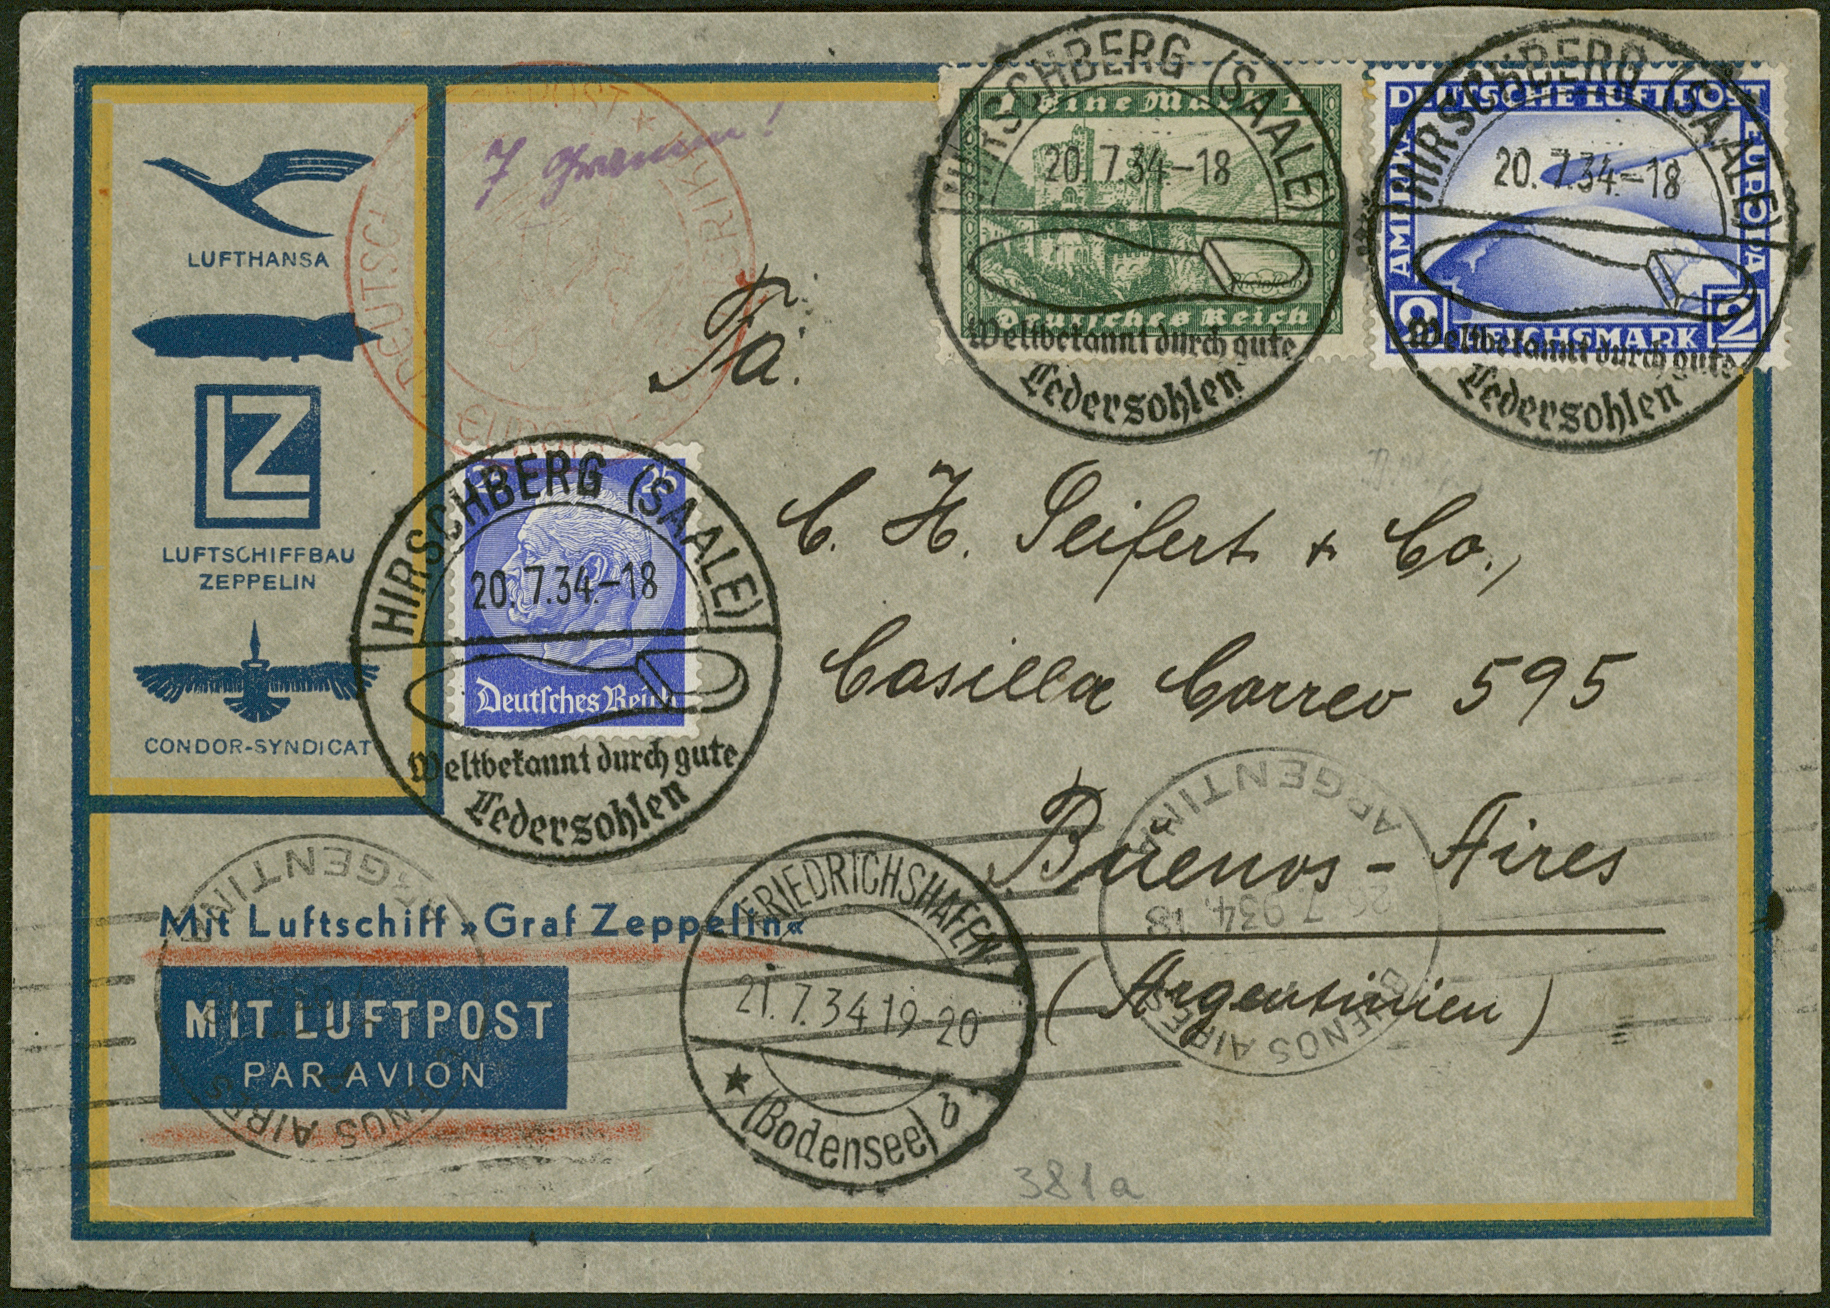 LUFTHANSA
LZ
LUFTSCHIFFBAU
ZEPPELIN
CONDOR-SYNDICAT
DEUTSCHE
7 Gramm!
1 Eine Mark 1
Deutsches Reich
HIRSCHBERG (SAALE)
20.7.34.-18
Weltbekannt durch gute
Ledersohlen
DEUTSCHE LUFTPOST
AMERIKA
EUROPA
2 REICHSMARK 2
HIRSCHBERG (SAALE)
20.7.34.-18
Weltbekannt durch gute
Ledersohlen
25
Deutsches Reich
HIRSCHBERG (SAALE)
20.7.34.-18
Weltbekannt durch gute
Ledersohlen
Fa.
C. H. Seifert + Co.,
Casilla Correo 595
Buenos-Aires
(Argentinien)
ARGENTINA
BUENOS AIRES
ARGENTINA
BUENOS AIRES
Mit Luftschiff »Graf Zeppelin«
MIT LUFTPOST
PAR AVION
FRIEDRICHSHAFEN
21.7.34 19-20
(Bodensee) b
381a